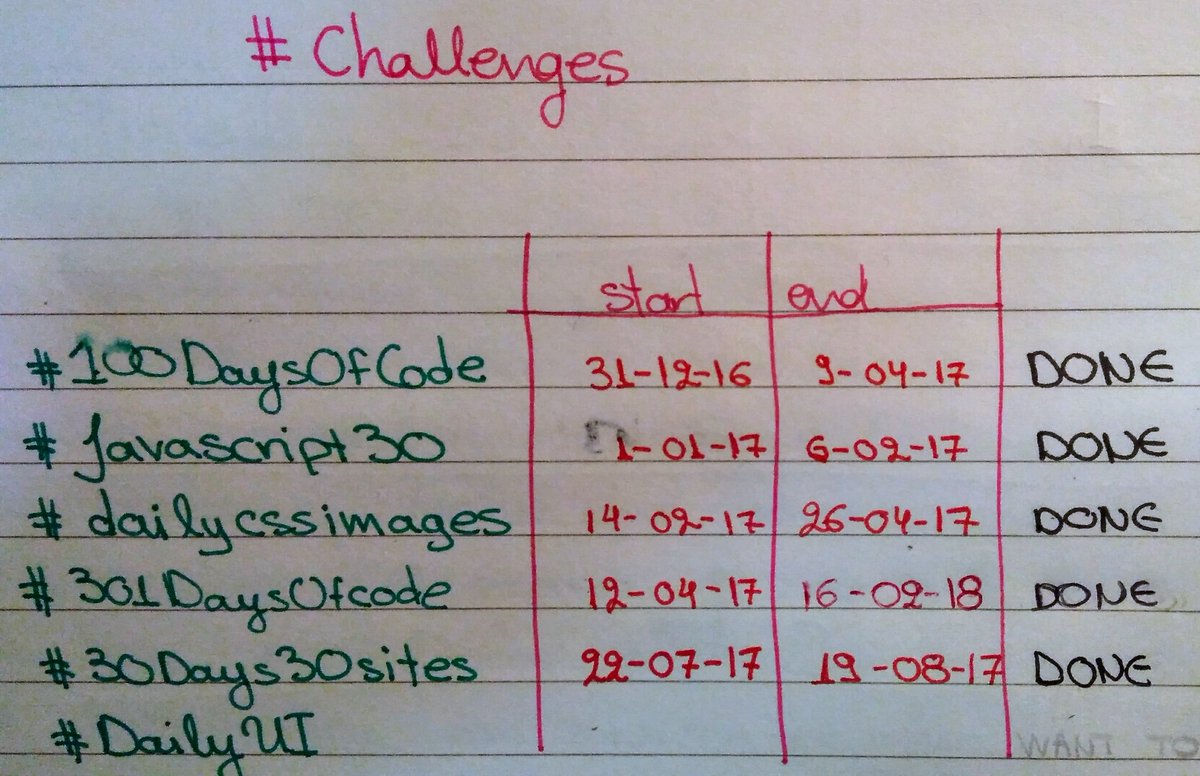 # Challenges
start end
#100DaysOfCode 31-12-16 9-04-17 DONE
#Javascript30 1-01-17 6-02-17 DONE
#dailycssimages 14-02-17 26-04-17 DONE
#301DaysOfcode 12-04-17 16-02-18 DONE
#30Days30sites 22-07-17 19-08-17 DONE
#DailyUI